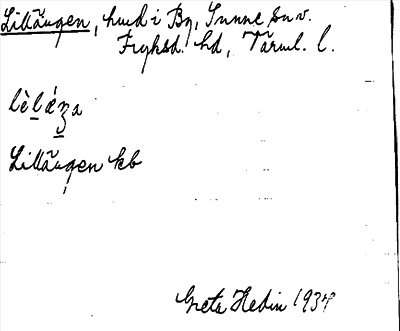 Lillängen, hmd i By, Sunne sn v.
Fryksd. hd, Värml. l.
Lillängen kb
Greta Hedin 1934